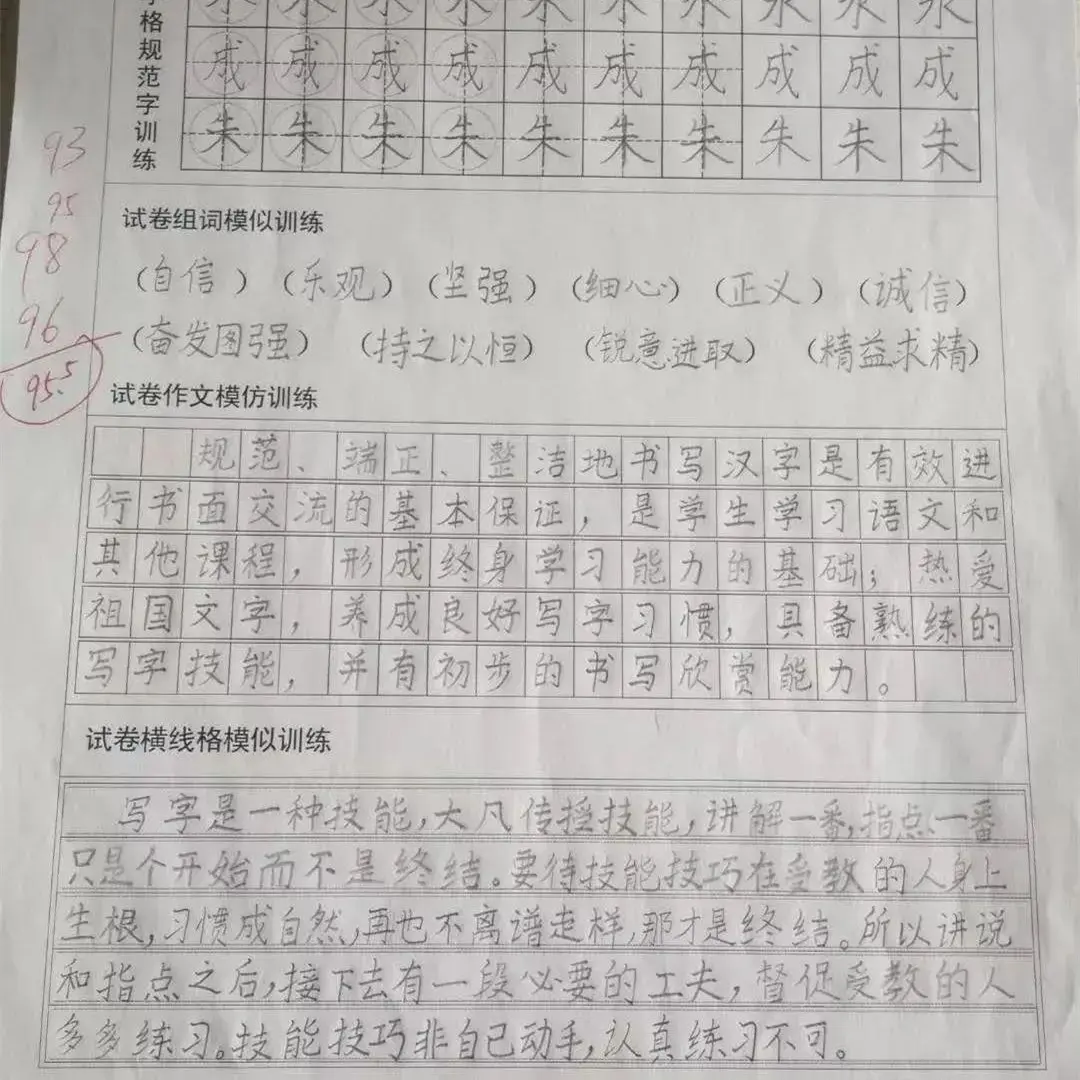 格规范字训练
成成成成成成成成成成
朱朱朱朱朱朱朱朱朱朱
93
95
98
96
95.5
试卷组词模似训练
(自信)(乐观)(坚强)(细心)(正义)(诚信)
(奋发图强)(持之以恒)(锐意进取)(精益求精)
试卷作文模仿训练
规范、端正、整洁地书写汉字是有效进
行书面交流的基本保证，是学生学习语文和
其他课程，形成终身学习能力的基础；热受
祖国文字，养成良好写字习惯，具备熟练的
写字技能，并有初步的书写欣赏能力。
试卷横线格模似训练
写字是一种技能，大凡传授技能，讲解一番，指点一番
只是个开始而不是终结。要待技能技巧在受教的人身上
生根，习惯成自然，再也不离谱走样，那才是终结。所以讲说
和指点之后，接下去有一段必要的工夫，督促受教的人
多多练习。技能技巧非自己动手，认真练习不可。